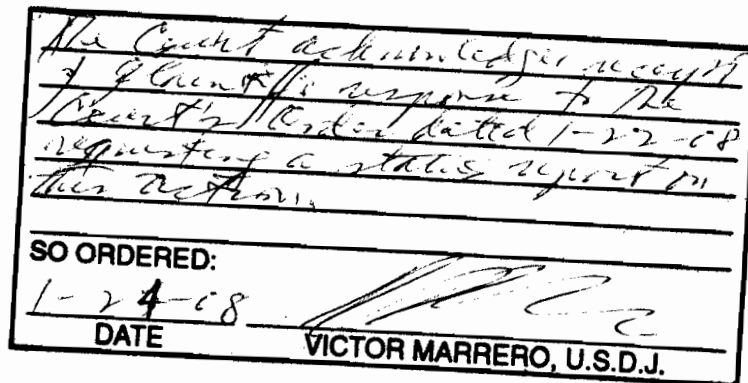 The Court acknowledges receipt
of plaintiff's response to the
Court's Order dated 1-22-08
requesting a status report on
this action.
SO ORDERED:
1-24-08
DATE
VICTOR MARRERO, U.S.D.J.